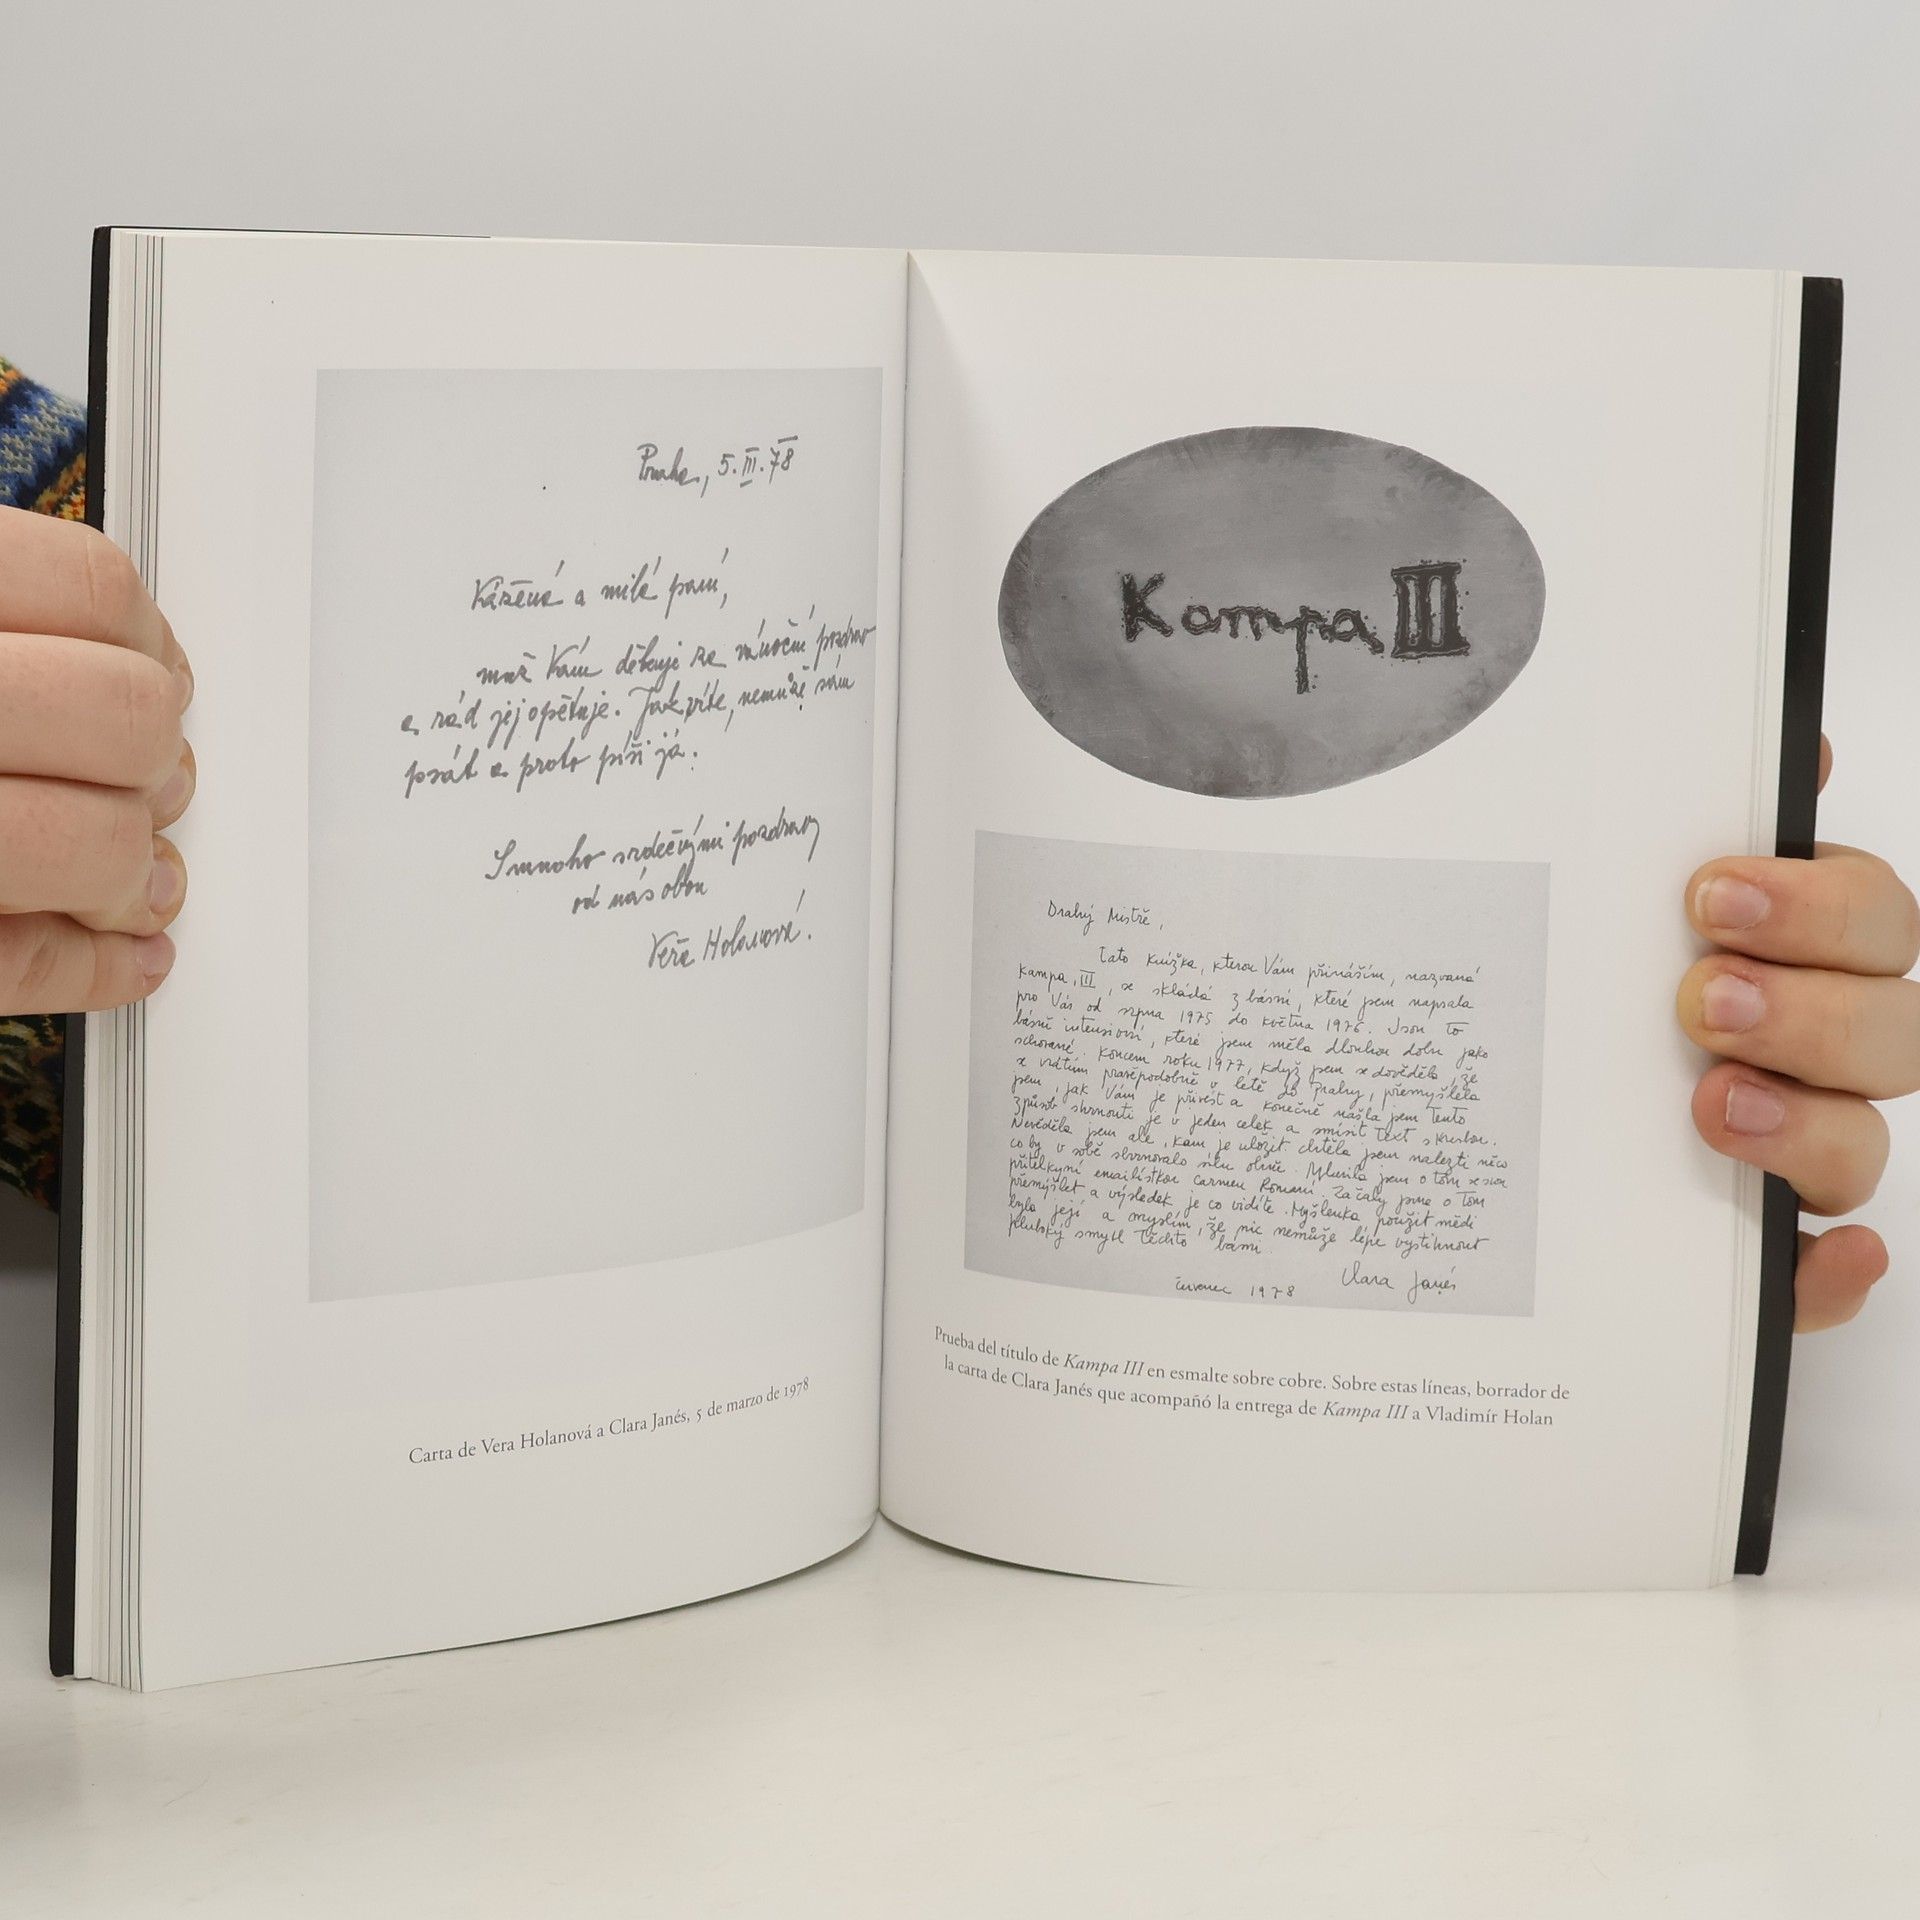 Praha, 5.III.78
Vážená a milá paní,
muž Vám děkuje za vánoční pozdrav
a rád jej opětuje. Jak víte, nemůže sám
psát a proto píši já.
S mnoha srdečnými pozdravy
od nás obou
Věra Holanová.
Carta de Vera Holanová a Clara Janés, 5 de marzo de 1978
Kampa III
Drahý Mistře,
tato knížka, kterou Vám přináším, nazvaná
Kampa, III, se skládá z básní, které jsem napsala
pro Vás od srpna 1975 do května 1976. Jsou to
básně intensivní, které jsem měla dlouhou dobu jako
schované. Koncem roku 1977, když jsem se dověděla, že
se vrátím pravěpodobně v létě do Prahy, přemyšlela
jsem, jak Vám je přivést a konečně našla jsem tento
způsob shrnouti je v jeden celek a smísit text s kresbou.
Nevěděla jsem ale, kam je uložit. chtěla jsem nalezti něco
co by v sobě shrnovalo sílu ohně. Mluvila jsem o tom se svou
přítelkyní emailistkou Carmen Romaní. Začaly jsme o tom
přemýšlet a výsledek je co vidíte. Myšlenka použít mědi
byla její a myslím, že nic nemůže lépe vystihnout
hlubský smysl těchto básní.
červenec 1978
Clara Janés
Prueba del título de Kampa III en esmalte sobre cobre. Sobre estas líneas, borrador de
la carta de Clara Janés que acompañó la entrega de Kampa III a Vladimír Holan